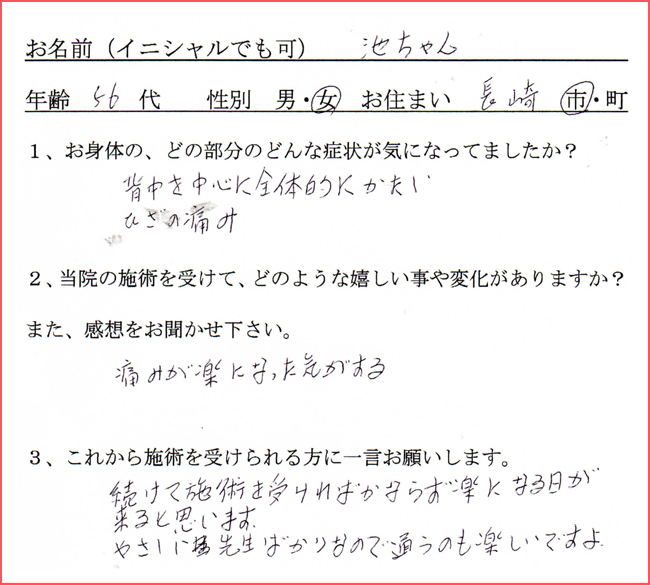 お名前（イニシャルでも可） 池ちゃん
年齢 56 代 性別 男・女 お住まい 長崎 市・町
１、お身体の、どの部分のどんな症状が気になってましたか？
背中を中心に全体的にかたい
ひざの痛み
２、当院の施術を受けて、どのような嬉しい事や変化がありますか？
また、感想をお聞かせ下さい。
痛みが楽になった気がする
３、これから施術を受けられる方に一言お願いします。
続けて施術を受ければかならず楽になる日が
来ると思います。
やさしい先生ばかりなので通うのも楽しいですよ